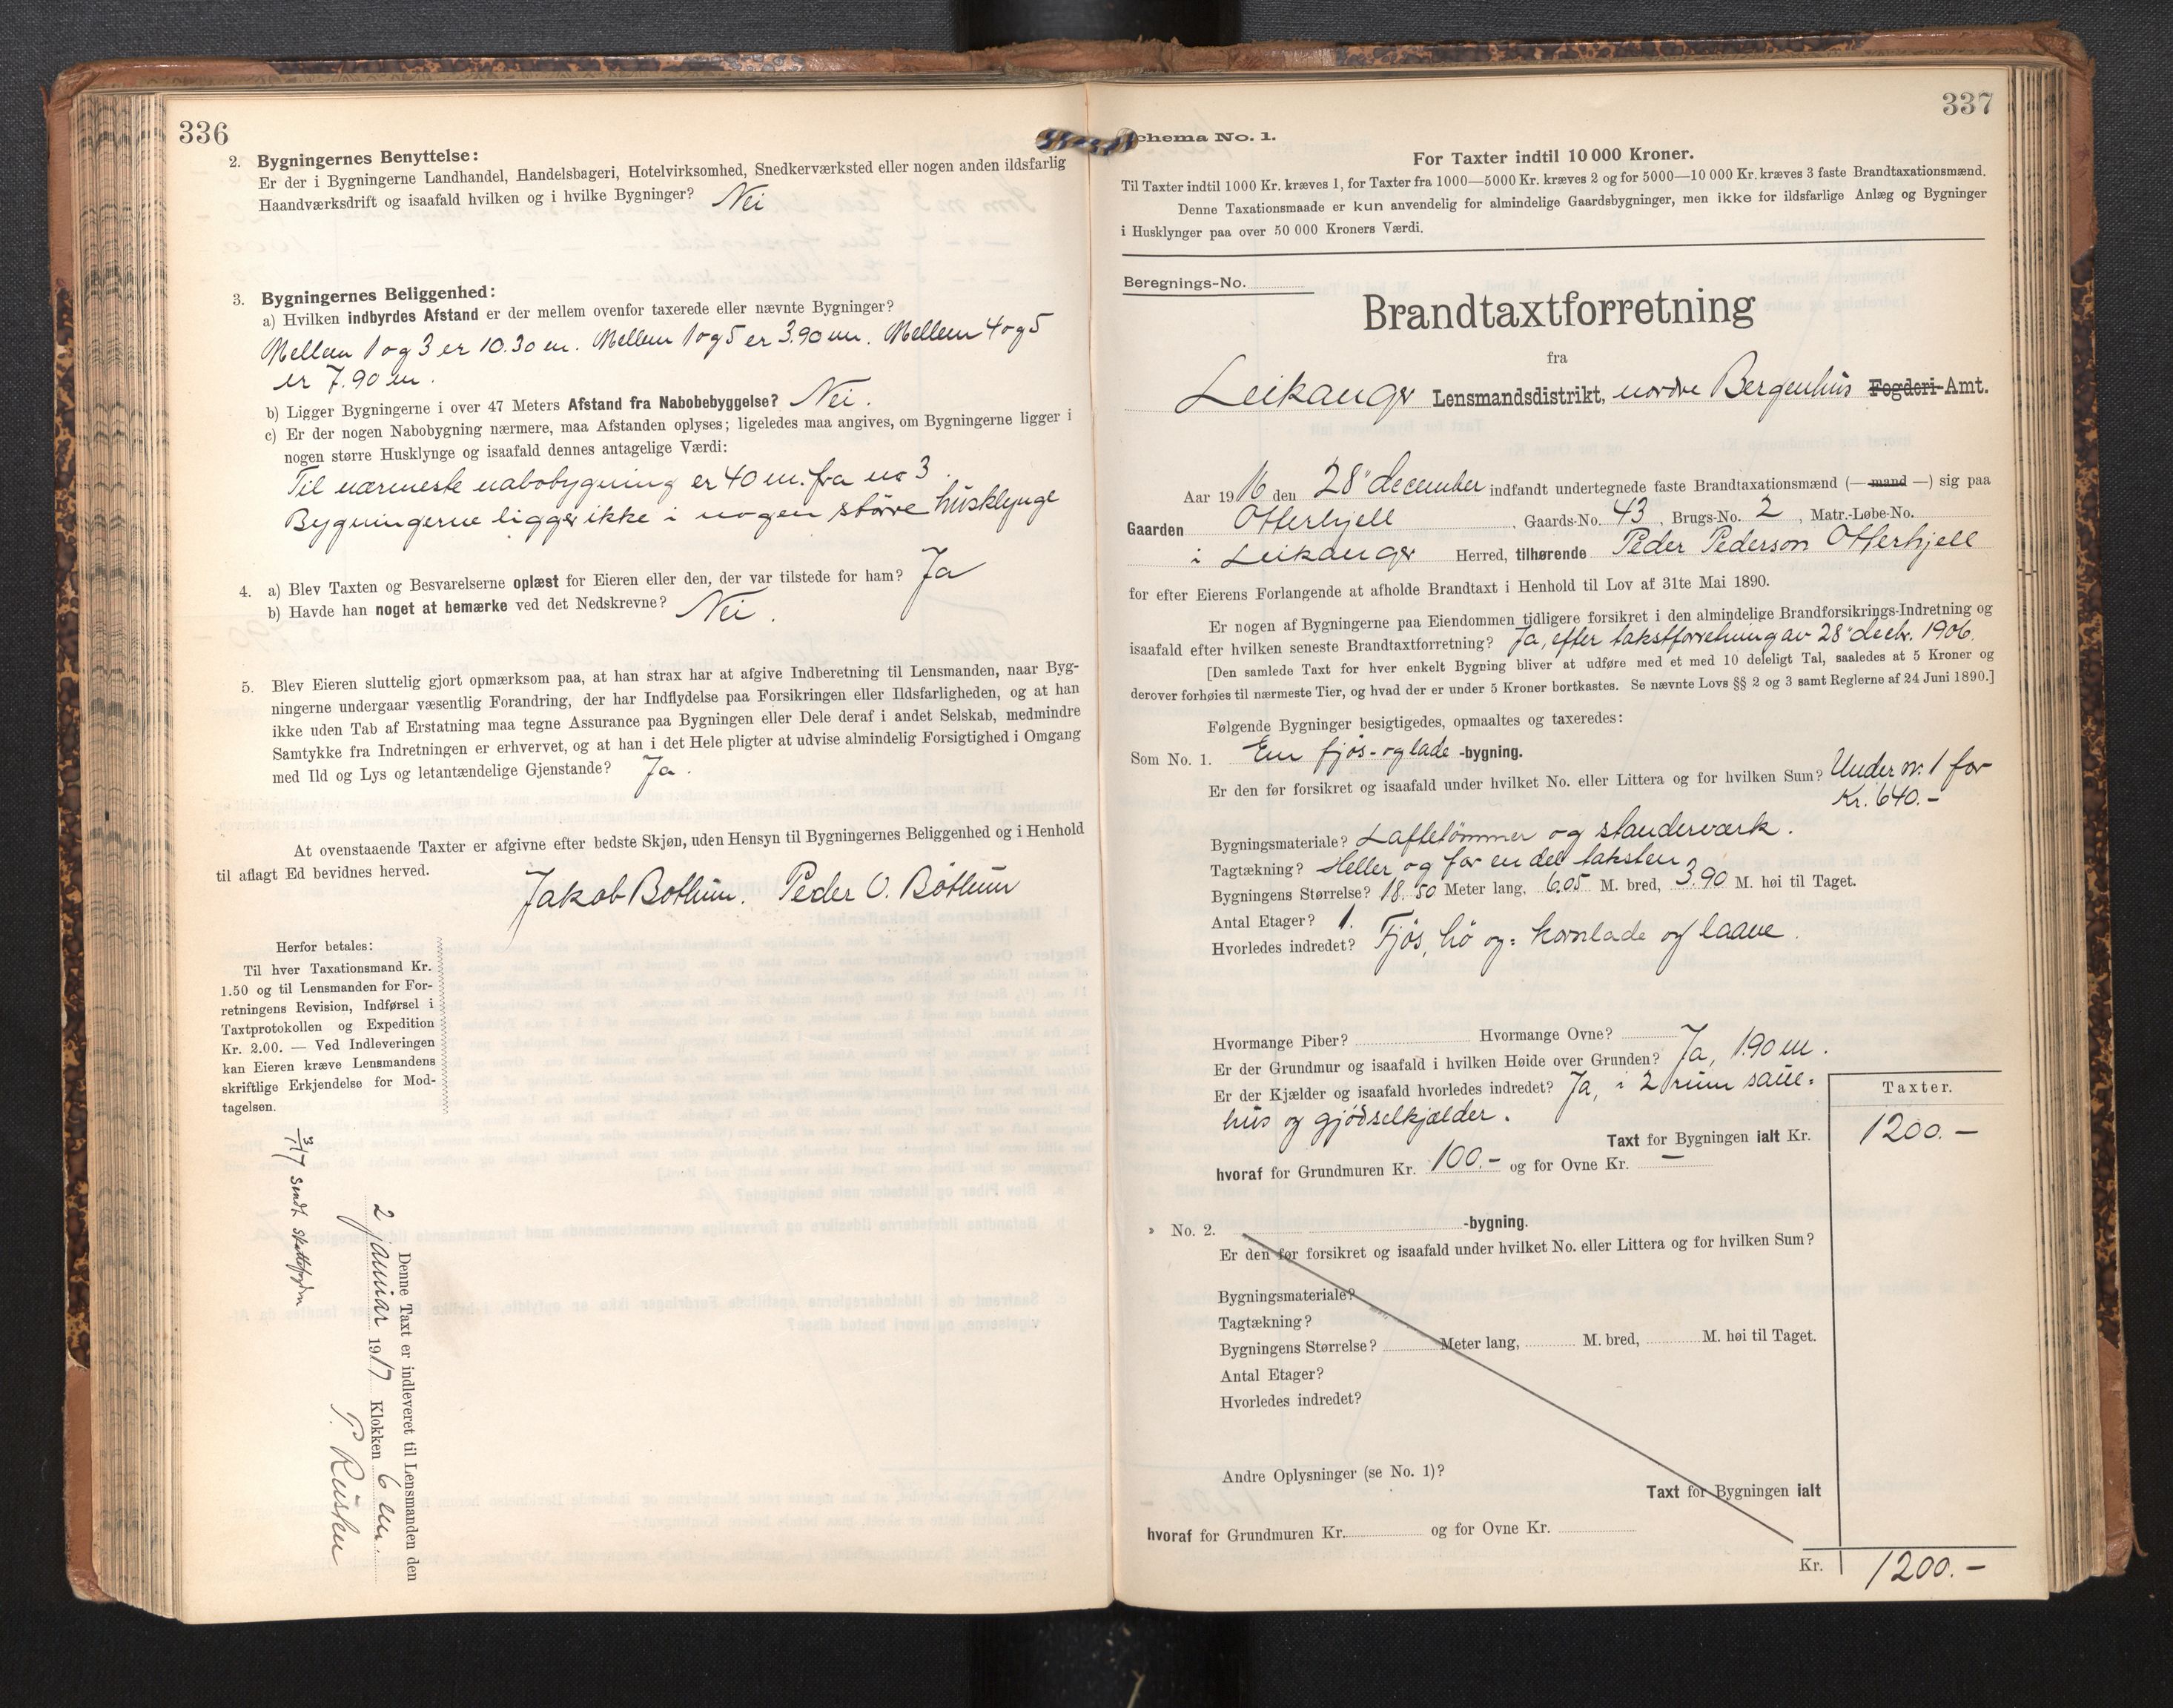 336
2. Bygningernes Benyttelse:
Er der i Bygningerne Landhandel, Handelsbageri, Hotelvirksomhed, Snedkerværksted eller nogen anden ildsfarlig
Haandværksdrift og isaafald hvilken og i hvilke Bygninger? Nei
3. Bygningernes Beliggenhed:
a) Hvilken indbyrdes Afstand er der mellem ovenfor taxerede eller nævnte Bygninger?
Mellem 1 og 3 er 10.30 m. Mellem 1 og 5 er 3.90 m. Mellem 4 og 5
er 7.90 m.
b) Ligger Bygningerne i over 47 Meters Afstand fra Nabobebyggelse? Nei.
c) Er der nogen Nabobygning nærmere, maa Afstanden oplyses; ligeledes maa angives, om Bygningerne ligger i
nogen større Husklynge og isaafald dennes antagelige Værdi:
Til nærmeste nabobygning er 40 m. fra no 3.
Bygningerne ligger ikke i nogen større husklynge
4. a) Blev Taxten og Besvarelserne oplæst for Eieren eller den, der var tilstede for ham? Ja
b) Havde han noget at bemærke ved det Nedskrevne? Nei.
5. Blev Eieren sluttelig gjort opmærksom paa, at han strax har at afgive Indberetning til Lensmanden, naar Byg-
ningerne undergaar væsentlig Forandring, der har Indflydelse paa Forsikringen eller Ildsfarligheden, og at han
ikke uden Tab af Erstatning maa tegne Assurance paa Bygningen eller Dele deraf i andet Selskab, medmindre
Samtykke fra Indretningen er erhvervet, og at han i det Hele pligter at udvise almindelig Forsigtighed i Omgang
med Ild og Lys og letantændelige Gjenstande? Ja.
At ovenstaaende Taxter er afgivne efter bedste Skjøn, uden Hensyn til Bygningernes Beliggenhed og i Henhold
til aflagt Ed bevidnes herved.
Jakob Bothun. Peder O. Bothun
Herfor betales:
Til hver Taxationsmand Kr.
1.50 og til Lensmanden for For-
retningens Revision, Indførsel i
Taxtprotokollen og Expedition
Kr. 2.00. — Ved Indleveringen
kan Eieren kræve Lensmandens
skriftlige Erkjendelse for Mod-
tagelsen.
Denne Taxt er indleveret til Lensmanden den
2 januar 1917 Klokken 6 em.
P. Rusten
3/1 17 sendt
337
Schema No. 1.
For Taxter indtil 10 000 Kroner.
Til Taxter indtil 1000 Kr. kræves 1, for Taxter fra 1000—5000 Kr. kræves 2 og for 5000—10 000 Kr. kræves 3 faste Brandtaxationsmænd.
Denne Taxationsmaade er kun anvendelig for almindelige Gaardsbygninger, men ikke for ildsfarlige Anlæg og Bygninger
i Husklynger paa over 50 000 Kroners Værdi.
Beregnings-No.
Brandtaxtforretning
fra
Leikanger Lensmandsdistrikt, nordre Bergenhus Fogderi-Amt.
Aar 1916 den 28" december indfandt undertegnede faste Brandtaxationsmænd (— mand —) sig paa
Gaarden Otterhjell, Gaards-No. 43, Brugs-No. 2, Matr.-Løbe-No.
i Leikanger Herred, tilhørende Peder Pederson Otterhjell
for efter Eierens Forlangende at afholde Brandtaxt i Henhold til Lov af 31te Mai 1890.
Er nogen af Bygningerne paa Eiendommen tidligere forsikret i den almindelige Brandforsikrings-Indretning og
isaafald efter hvilken seneste Brandtaxtforretning? Ja, efter takstforretning av 28" decbr. 1906.
[Den samlede Taxt for hver enkelt Bygning bliver at udføre med et med 10 deleligt Tal, saaledes at 5 Kroner og
derover forhøies til nærmeste Tier, og hvad der er under 5 Kroner bortkastes. Se nævnte Lovs §§ 2 og 3 samt Reglerne af 24 Juni 1890.]
Følgende Bygninger besigtigedes, opmaaltes og taxeredes:
Som No. 1. En fjøs- og lade -bygning.
Er den før forsikret og isaafald under hvilket No. eller Littera og for hvilken Sum? Under nr. 1 for
Kr. 640.-
Bygningsmateriale? Laftetømmer og standerværk.
Tagtækning? Heller og for en del taksten
Bygningens Størrelse? 18.50 Meter lang, 6.05 M. bred, 3.90 M. høi til Taget.
Antal Etager? 1.
Hvorledes indredet? Fjøs, hø og= kornlade og laave.
Hvormange Piber? Hvormange Ovne?
Er der Grundmur og isaafald i hvilken Høide over Grunden? Ja, 1.90 m.
Er der Kjælder og isaafald hvorledes indredet? Ja, i 2 rum saue=
hus og gjødselkjælder.
Taxter.
Taxt for Bygningen ialt Kr. 1200.—
hvoraf for Grundmuren Kr. 100.- og for Ovne Kr. —
» No. 2. -bygning.
Er den før forsikret og isaafald under hvilket No. eller Littera og for hvilken Sum?
Bygningsmateriale?
Tagtækning?
Bygningens Størrelse? Meter lang, M. bred, M. høi til Taget.
Antal Etager?
Hvorledes indredet?
Andre Oplysninger (se No. 1)?
Taxt for Bygningen ialt
hvoraf for Grundmuren Kr. og for Ovne Kr.
Kr. 1200.-